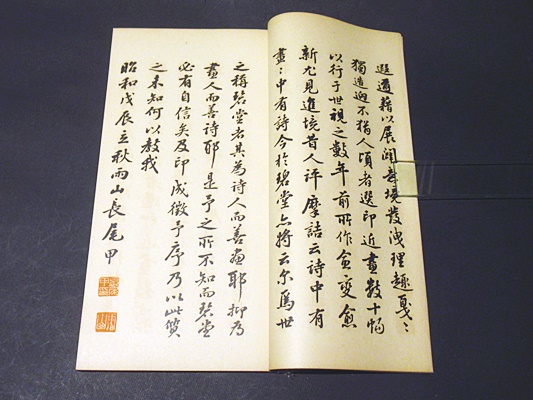 選選藉以展闊意境發洩理趣戛〻
獨造迥不猶人頃者選印近畫數十幅
以行于世視之數年前所作愈變愈
新尤見進境昔人評摩詰云詩中有
畫〻中有詩今於碧堂亦將云尔為世
之稱碧堂者其為詩人而善畫耶抑為
畫人而善詩耶是予之所不知而碧堂
必有自信矣及印成徵予序乃以此質
之未知何以教我
昭和戊辰立秋雨山長尾甲